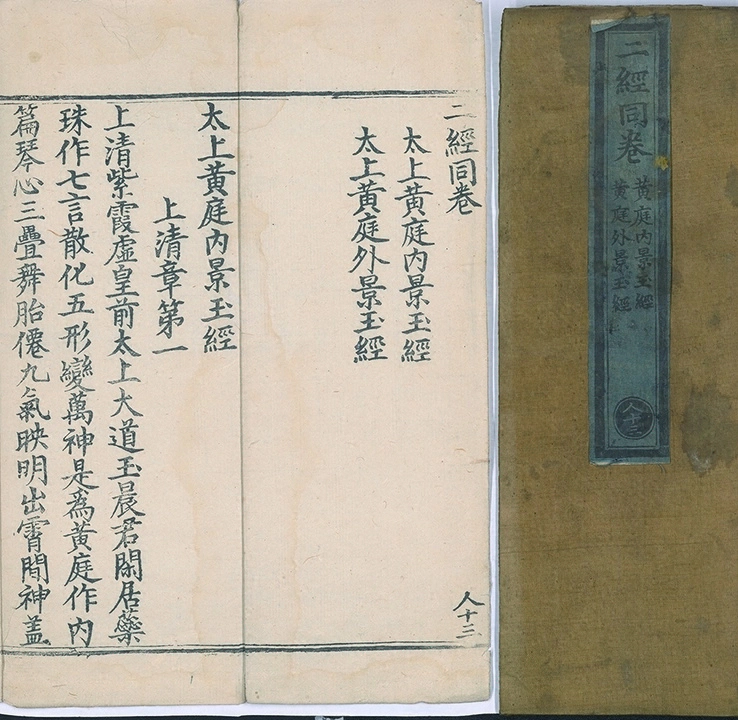 二經同卷
黃庭内景玉經
黃庭外景玉經
人十三
二經同卷
太上黃庭内景玉經
太上黃庭外景玉經
人十三
太上黃庭内景玉經
上清章第一
上清紫霞虛皇前太上大道玉晨君閑居蘂
珠作七言散化五形變萬神是爲黃庭作内
篇琴心三疊舞胎僊九氣映明出霄間神盖